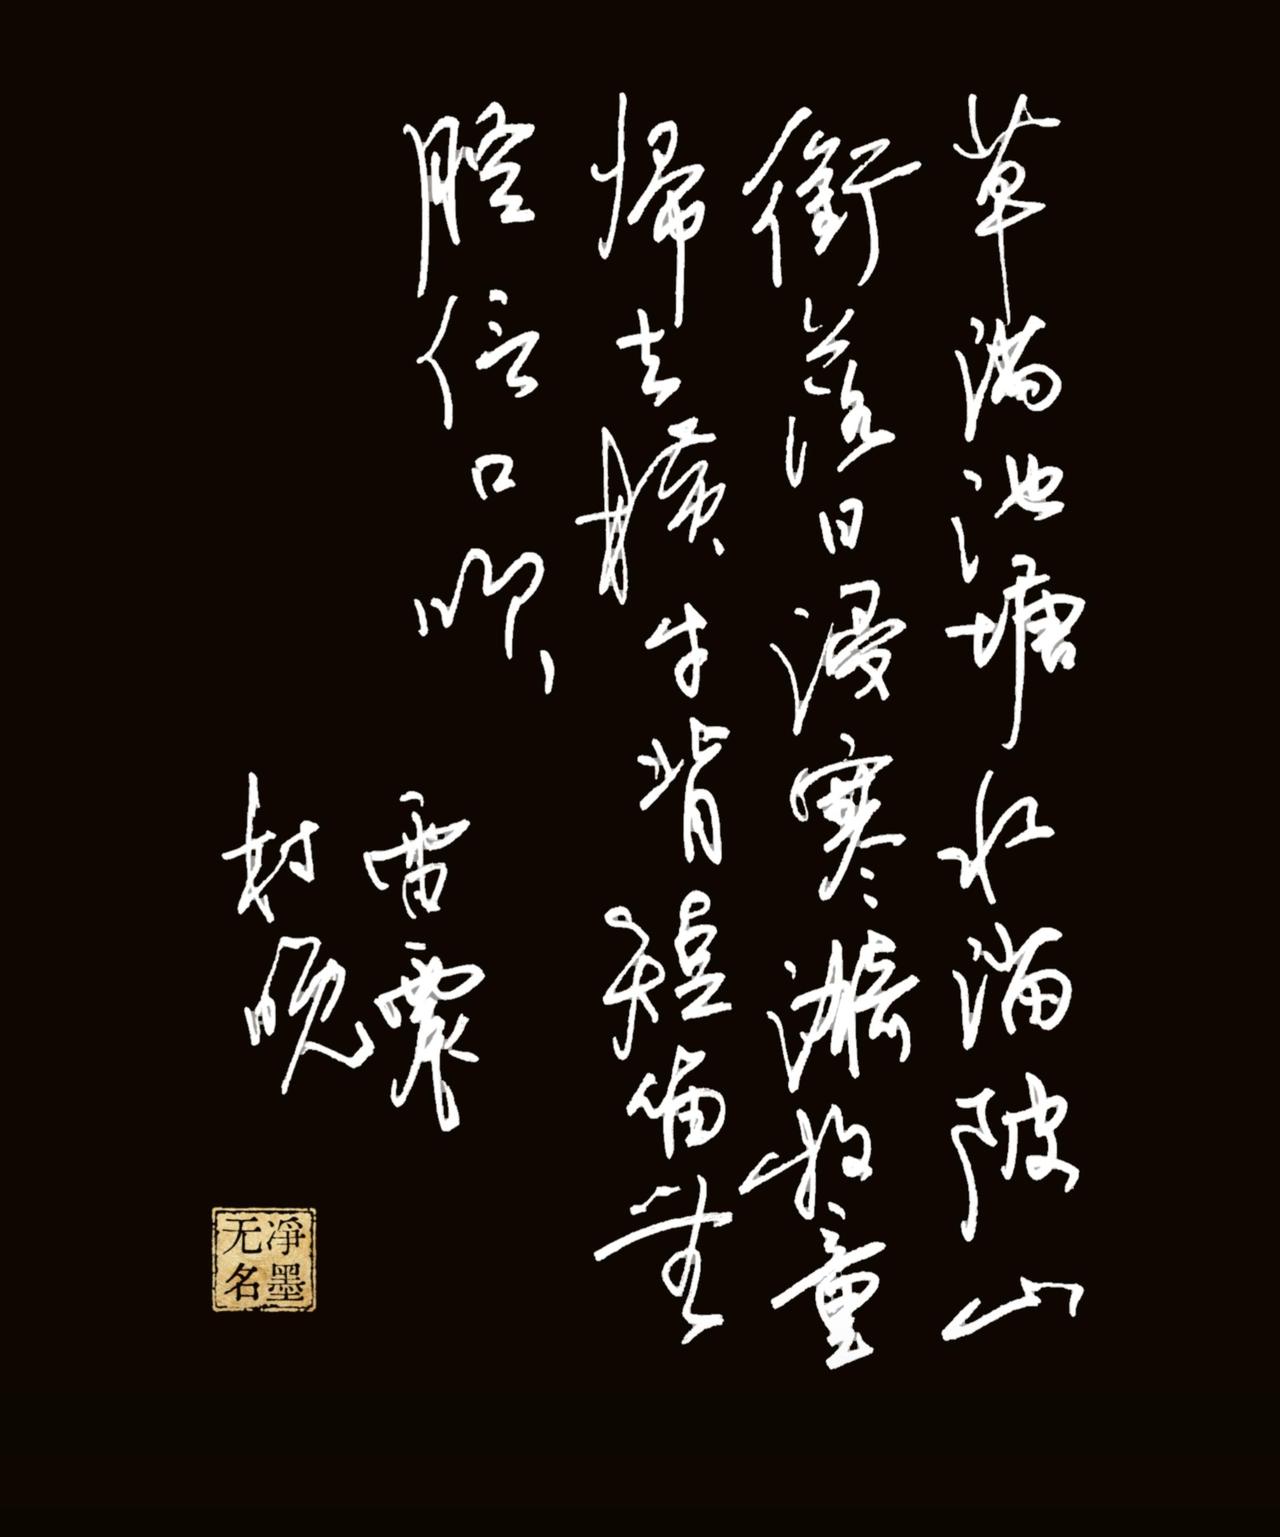 草滿池塘水滿陂山
銜落日浸寒漪牧童
歸去橫牛背短笛無
腔信口吹
雷震
村晚
淨墨
无名